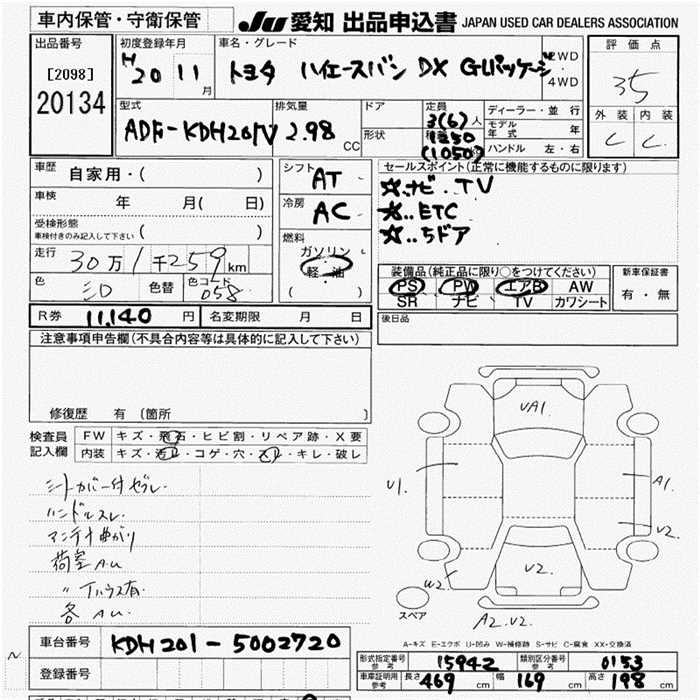 車内保管・守衛保管
JU 愛知 出品申込書 JAPAN USED CAR DEALERS ASSOCIATION
出品番号
[2098]
20134
初度登録年月
H 20 11 月
車名・グレード
トヨタ ハイエースバン DX GLパッケージ
2WD
4WD
評価点
35
外装 内装
C C
型式
ADF-KDH201V
排気量
2.98 CC
ドア
形状
定員
3(6)人
積載
1250
(1050)
ディーラー・並行
モデル年式 年
ハンドル 左・右
車歴
自家用・( )
車検
年 月( 日)
受検形態
車検付きのみ記入して下さい ( )
走行
30万1千259km
色
シロ
色替
色コード
058
シフト
AT
冷房
AC
燃料
ガソリン
軽・油
( )
セールスポイント(正常に機能するものに限ります)
☆.ナビ.TV
☆..ETC
☆..5ドア
装備品(純正品に限り○をつけてください)
PS PW エアB AW
SR ナビ TV カワシート
新車保証書
有・無
R券 11,140 円 名変期限 月 日
後日品
注意事項申告欄(不具合内容等は具体的に記入して下さい)
修復歴 有 [箇所 ]
検査員
記入欄
FW キズ・飛石・ヒビ割・リペア跡・X要
内装 キズ・汚レ・コゲ・穴・スレ・キレ・破レ
シートカバー付
ハンドルスレ
アンテナ曲がり
荷室AU
〃 有
各 AU
UA1
U1
A1
U2
U2
W2
A2.U2
スペア
A-キズ E-エクボ U-凹み W-補修跡 S-サビ C-腐食 XX-交換済
車台番号 KDH201-5002720
登録番号
形式指定番号 参考 15942 類別区分番号 参考 0153
車庫証明用 参考 長さ 469 cm 幅 169 cm 高さ 198 cm